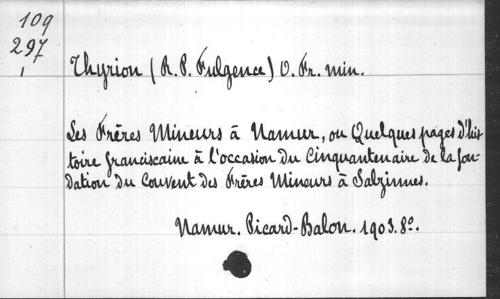 109
297
1
Thyrion (R. P. Fulgence) O. Fr. min.
Les Frères Mineurs à Namur, ou Quelques pages d'his
toire franciscaine à l'occasion du Cinquantenaire de la fon-
dation du Couvent des Frères Mineurs à Salzinnes.
Namur. Picard-Balon. 1903. 8º.